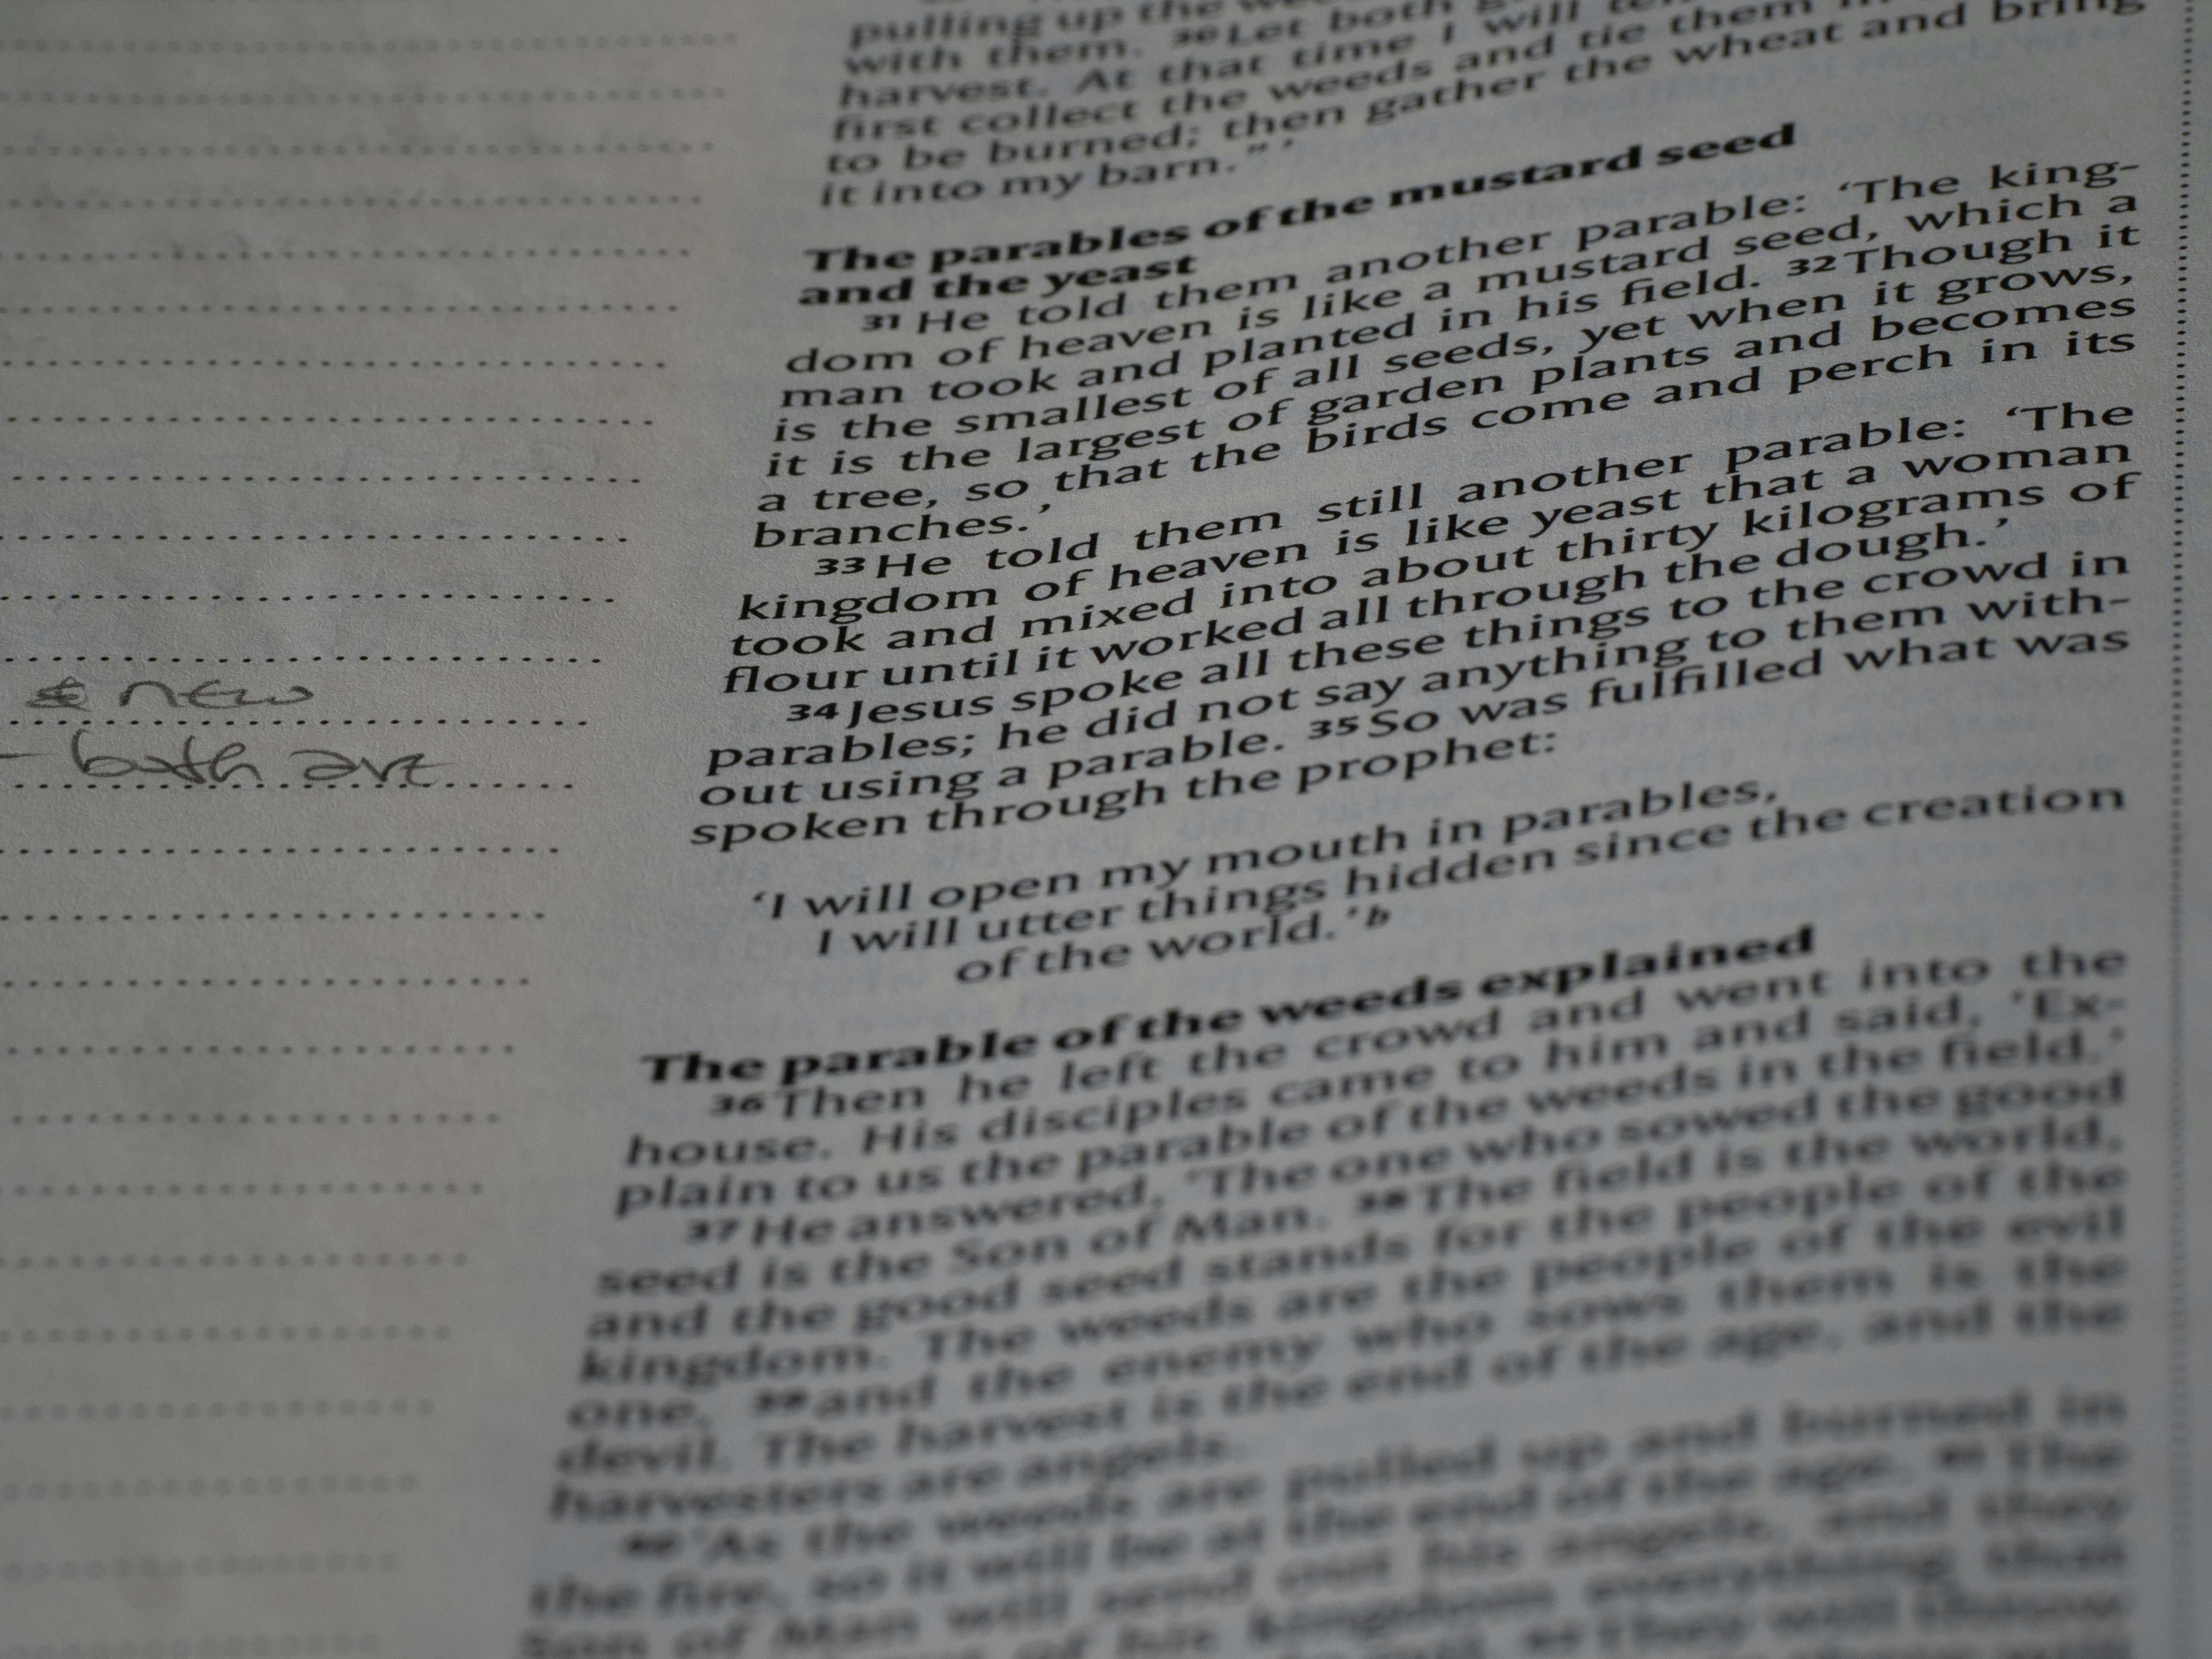 pulling up the
with them. 30 Let both
harvest. At that time I will
first collect the weeds and tie them
to be burned; then gather the wheat and bring
it into my barn.” ’
The parables of the mustard seed
and the yeast
31 He told them another parable: ‘The king-
dom of heaven is like a mustard seed, which a
man took and planted in his field. 32 Though it
is the smallest of all seeds, yet when it grows,
it is the largest of garden plants and becomes
a tree, so that the birds come and perch in its
branches.’
33 He told them still another parable: ‘The
kingdom of heaven is like yeast that a woman
took and mixed into about thirty kilograms of
flour until it worked all through the dough.’
34 Jesus spoke all these things to the crowd in
parables; he did not say anything to them with-
out using a parable. 35 So was fulfilled what was
spoken through the prophet:
‘I will open my mouth in parables,
I will utter things hidden since the creation
of the world.’ b
The parable of the weeds explained
36 Then he left the crowd and went into the
house. His disciples came to him and said, ‘Ex-
plain to us the parable of the weeds in the field.’
37 He answered, ‘The one who sowed the good
seed is the Son of Man. 38 The field is the world,
and the good seed stands for the people of the
kingdom. The weeds are the people of the evil
one, 39 and the enemy who sows them is the
devil. The harvest is the end of the age, and the
harvesters are angels.
40 ‘As the weeds are pulled up and burned in
the fire, so it will be at the end of the age. 41 The
Son of Man will send out his angels, and they
of his kingdom everything that
They will throw
& new
- both are